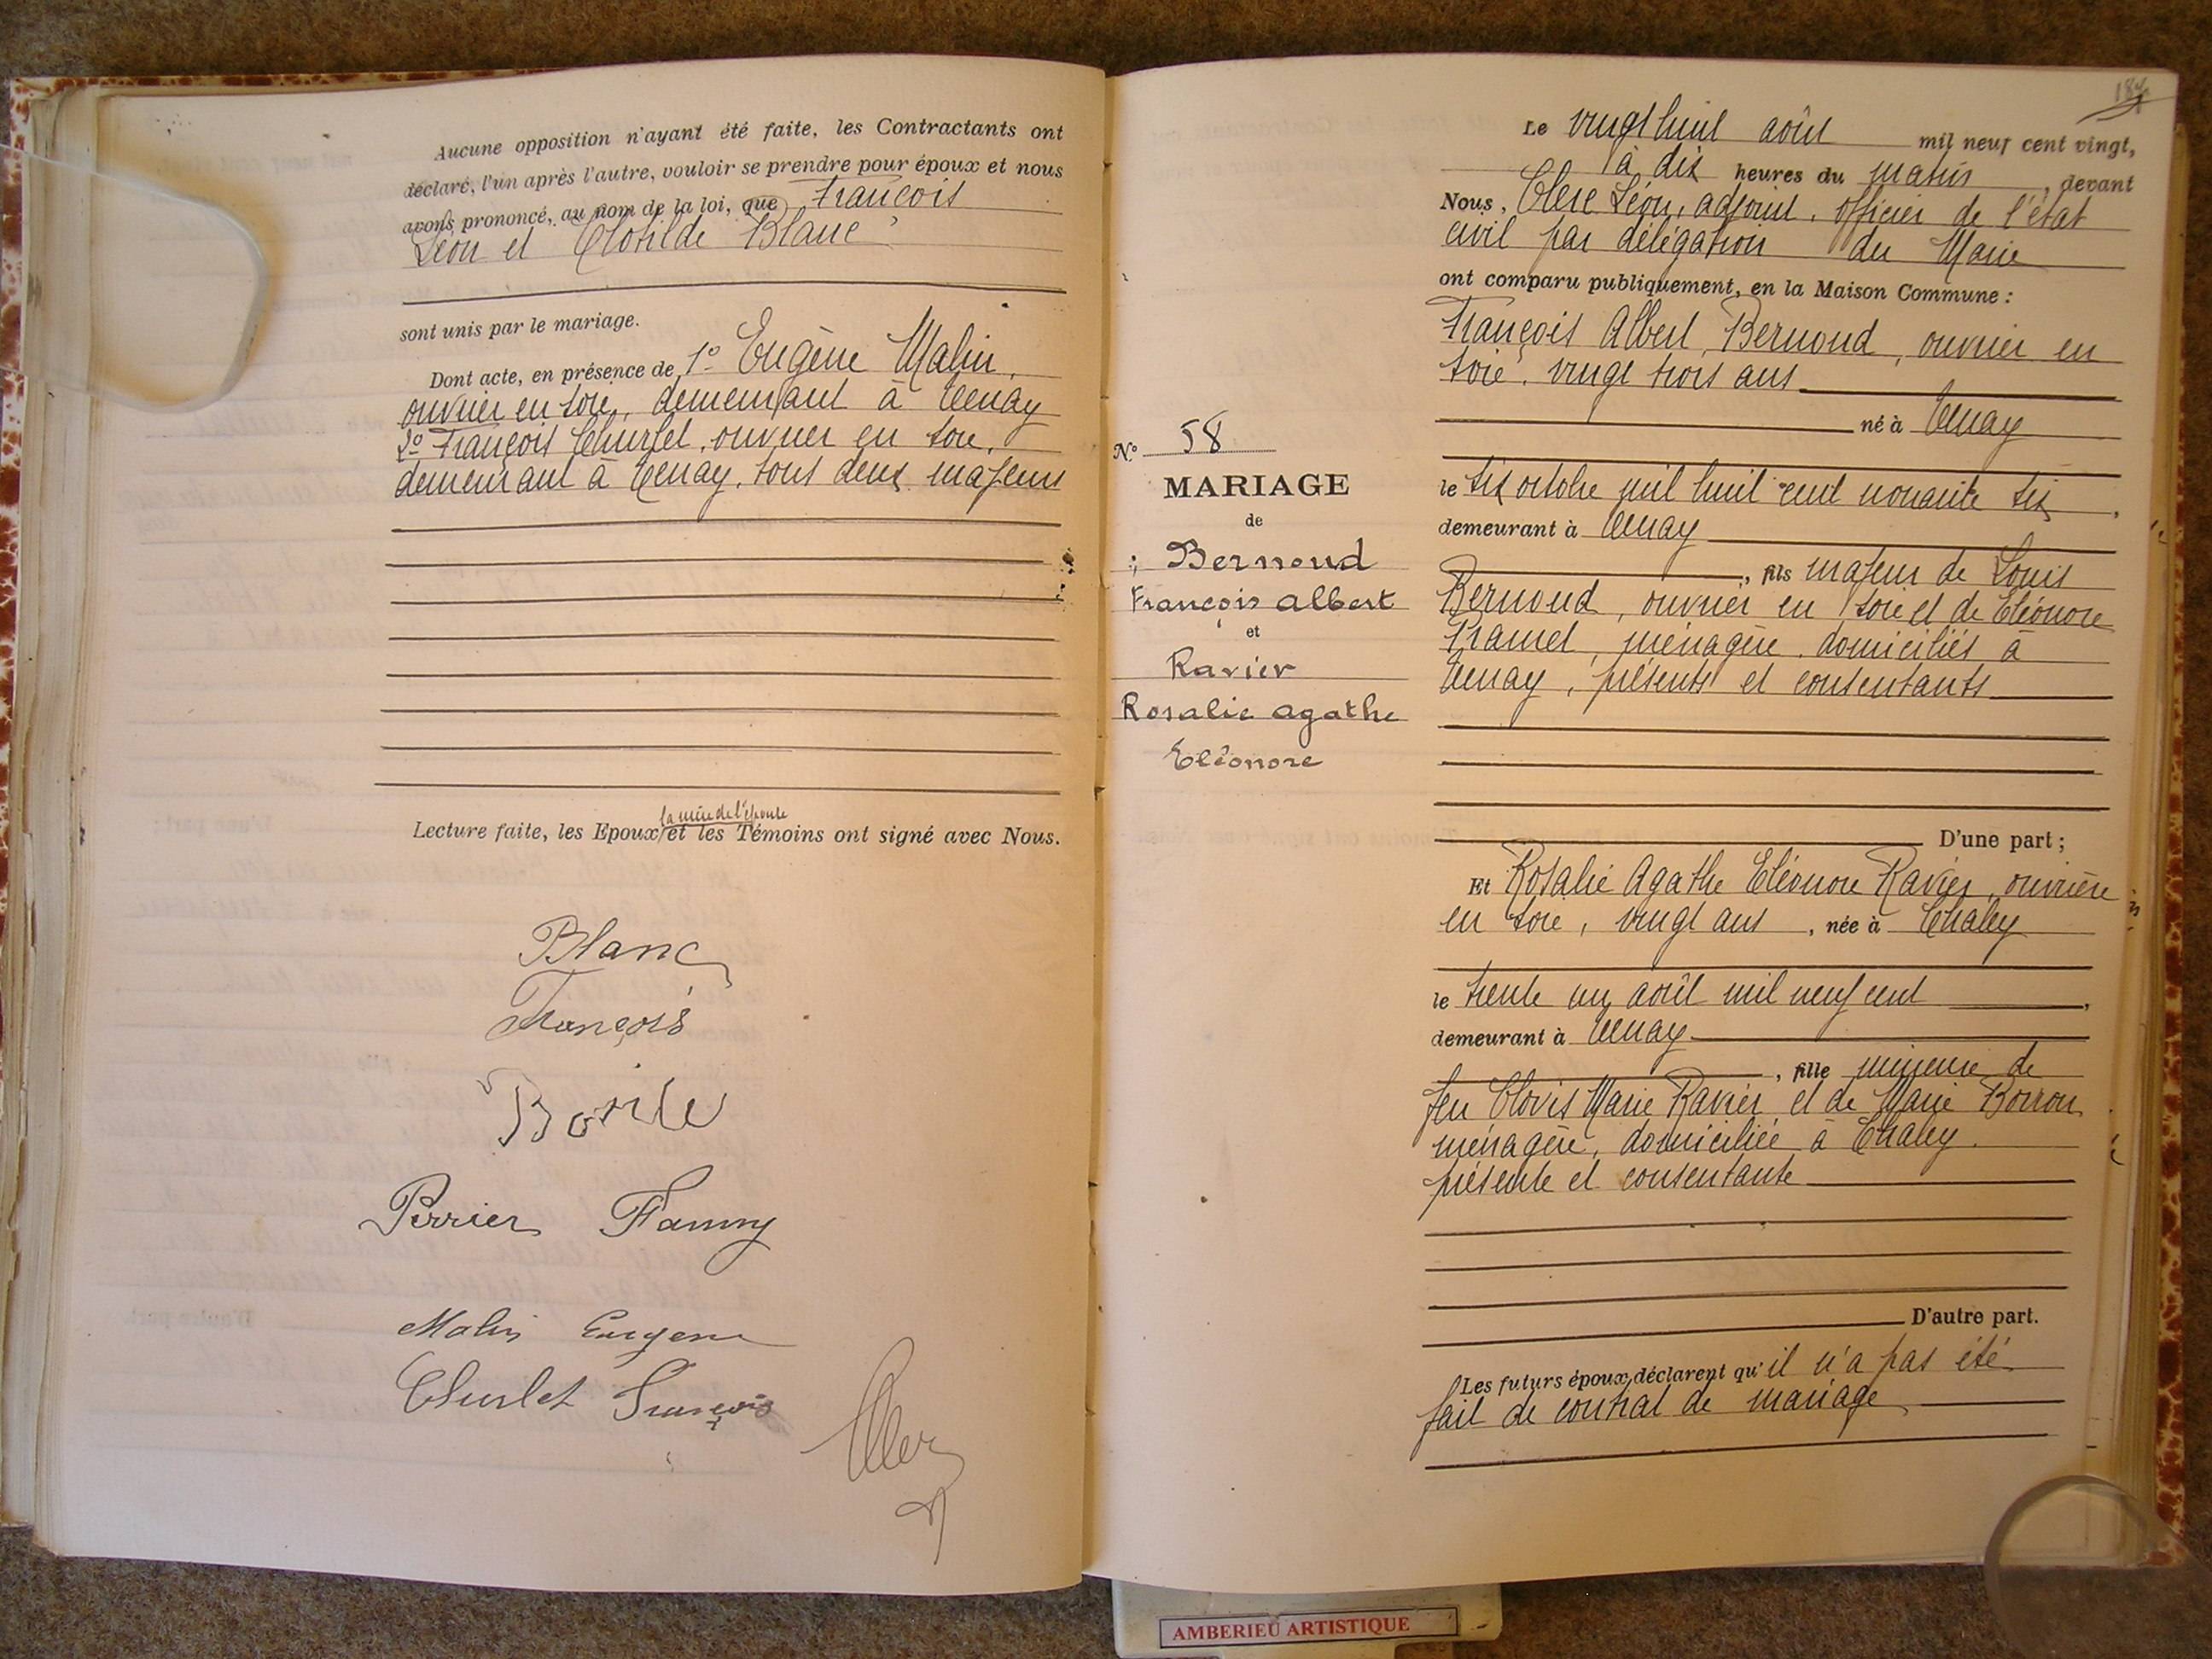 Aucune opposition n'ayant été faite, les Contractants ont
déclaré, l'un après l'autre, vouloir se prendre pour époux et nous
avons prononcé, au nom de la loi, que François
Léon et Clotilde Blanc
sont unis par le mariage.
Dont acte, en présence de 1º Eugène Malin,
ouvrier en soie, demeurant à Tenay
2º François Churlet, ouvrier en soie,
demeurant à Tenay, tous deux majeurs
la mère de l'épouse
Lecture faite, les Epoux et les Témoins ont signé avec Nous.
Blanc
François
Perrier Fanny
Malin Eugene
Churlet François
Clerc
Nº 58
MARIAGE
de
Bernoud
François Albert
et
Ravier
Rosalie Agathe
Eléonore
187
Le vingt huit août mil neuf cent vingt,
à dix heures du matin, devant
Nous, Clerc Léon, adjoint, officier de l'état
civil par délégation du Maire
ont comparu publiquement, en la Maison Commune :
François Albert Bernoud, ouvrier en
soie, vingt trois ans
né à Tenay
le six octobre mil huit cent nonante six,
demeurant à Tenay
, fils majeur de Louis
Bernoud, ouvrier en soie et de Eléonore
Tramel, ménagère, domiciliés à
Tenay, présents et consentants
D'une part ;
Et Rosalie Agathe Eléonore Ravier, ouvrière
en soie, vingt ans, née à Chaley
le trente un août mil neuf cent,
demeurant à Tenay
, fille mineure de
feu Clovis Marie Ravier et de Marie Borron
ménagère, domiciliée à Chaley.
présente et consentante
D'autre part.
Les futurs époux déclarent qu'il n'a pas été
fait de contrat de mariage
AMBERIEU ARTISTIQUE